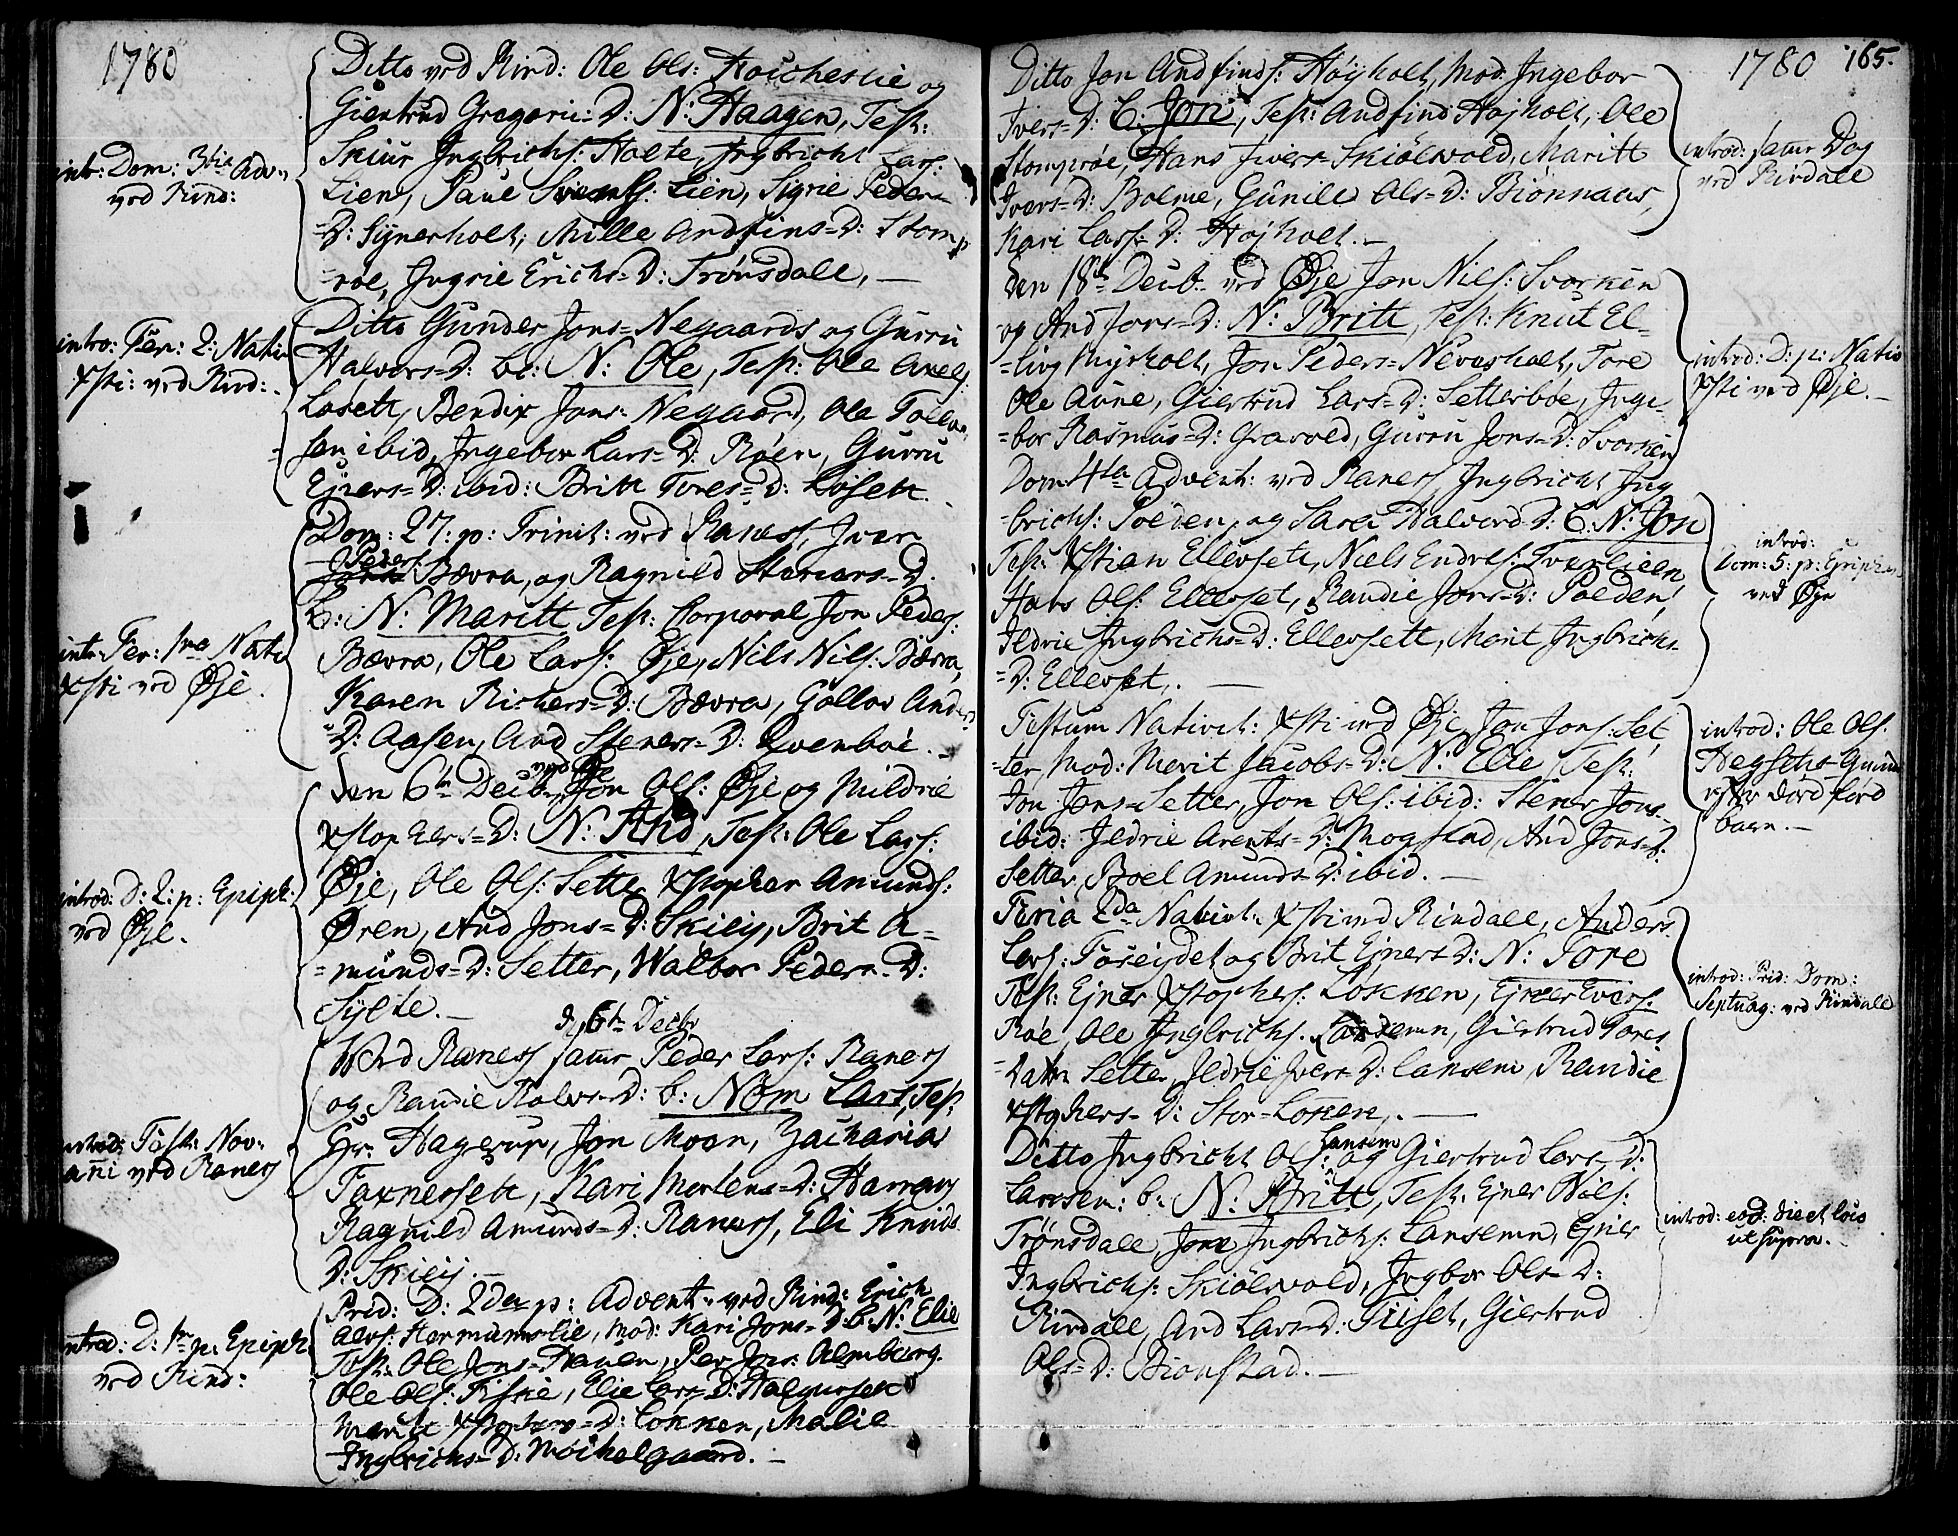 1780
Ditto ved Rind: Ole Ols: Hoücheslie og
Giertrud Gregorii=D: N: Haagen, Test:
Skiur Ingbrichs: Holte, Ingbricht Lars:
Lien, Paul Svends: Lien, Sigrie Peder=
=D: Synerholt, Mille Andfins=D: Stomp
=røe, Ingrie Erichs=D: Trønsdall, —
intr: Dom: 3tia Adv:
ved Rind:
Ditto Gunder Jons=Negaards og Gurru
Halvors=D: bt: N: Ole, Test: Ole Arels:
Losett, Bendix Jons: Negaard, Ole Tolle
sen ibid, Ingebor Lars=D: Røen, Gurru
Ejners=D: ibid: Britt Tores=D: Losett.
intro: Fer: 2: Nativ
Xsti: ved Rind:
Dom: 27: p: Trinit: ved Raness, Iver
Peders: Bævra, og Ragnild Sturars=D:
b: N: Maritt Test: Corporal Jon Peders:
Bævra, Ole Lars: Øje, Nils Nils: Bævra,
Karen Richers=D: Bævra, Gollov Anders
=D: Aasen, And Steners=D: Qvenboe.
intr: Fer: 1ma Nativ
Xsti ved Øje.
den 6te Decb: ved Øje Jon Ols: Øje og Mildrie
Xstophers=D: N: And, Test: Ole Lars:
Øje, Ole Ols: Sette Xstopher Amunds:
Øren, And Jons=D: Skieij, Brit A=
=munds=D: Setter, Walbor Peders=D:
Sylte. —
introd: D: 2: p: Epiph:
ved Øje.
dy 6te Decbr
Wed Raness samme Peder Lars: Raness
og Randie Rolvs=D: b: Nom Lars, Test:
Hr: Hagerup, Jon Moan, Zacharias
Taxnersett, Kari Mortens=D: Harrang
Ragnild Amunds=D: Raness, Eli Knuds
D: Skieij. —
introd: Fest: Nov:
anni ved Raness
Prid: D: 2da p: Advent: ved Rind: Erich
Alvs: Hermunslie, Mod: Kari Jons=D: b: N: Elie
Test: Ole Jons=Hauen, Per Jons: Almberg.
Ole Ols: Fiske, Elie Lars=D: Halgunsett
Marit Xstophers=D: Löcken, Malie
Ingbrichs=D: Möchelgaard. —
introd: D: 1ma p: Epiph:
ved Rind:
1780 165.
Ditto Jon Andfinds: Høyholt, Mod: Ingebor
Ivers=D: C: Jon, Test: Andfind Højholt, Ole
Stomprøe, Hans Ivers=Skiølvold, Maritt
Ivers=D: Bolme, Gunild Ols=D: Biønnaas,
Kari Lars=D: Højholt. —
introd: samme Dag
ved Rindall
den 18de Decb: ved Øje Jon Nils: Svorken
og And Jons=D: N: Britt, Test: Knut El=
=livs Myrholt, Jon Peders=Neverholt, Tore
Ole Aune, Giertrud Lars=D: Setterbøe, Inge=
=bor Rasmus=D: Grasvold, Gurru Jons=D: Svorken
introd: D: p: Nativ
Xsti ved Øje. —
Dom: 4ta Advent: ved Raness Ingbricht Ing
=brichs: Poeden, og Sara Halvors D: C: N: Jon
Test: Xstian Ellevsett, Niels Endres: Tverlieen
Hans Ols: Ellevset, Randie Jons=D: Poeden,
Ildrie Ingbrichs=D: Ellevsett, Marit Ingbrichs
=D: Ellevset,. —
introd:
Dom: 5: p: Epiph:
ved Øje
Festum Nativit: Xsti ved Øje Jon Jons: Set
=ter, Mod: Merit Jacobs=D: N: Elie Test:
Jon Jons=Setter, Jon Ols: ibid: Stener Jons=
ibid: Ildrie Arents=D: Mogstad, And Jons=D:
Setter, Boel Amunds=D: ibid. —
introd: Ole Ols.
Hegsets=
barn. —
Feria 2da Nativit: Xsti ved Rindall, Anders
Lars: Foreijdet og Brit Ejners D: N: Tore
Test: Ejner Xstophers: Löcken, Ejner Evers:
Røe, Ole Ingbrichs: Lansemn, Giertrud Tores
Datter Setter, Ildrie Ivers=D: Lansem, Randie
Xstophers=D: Stor=Löken,. —
introd: Prid: Dom:
Septuag: ved Rindall
Ditto Ingbricht Ols: Lansem og Giertrud Lars=D:
Lansem: b: N: Britt, Test: Ejner Nils:
Trønsdall, Jon Ingbrichs: Lansemn, Ejner
Ingbrichs: Skiølvold, Ingbor Ols=D:
Rindall, And Lars=D: Tiset, Giertrud
Ols=D: Bionstad. —
introd: eod: die et loco
ut supra.